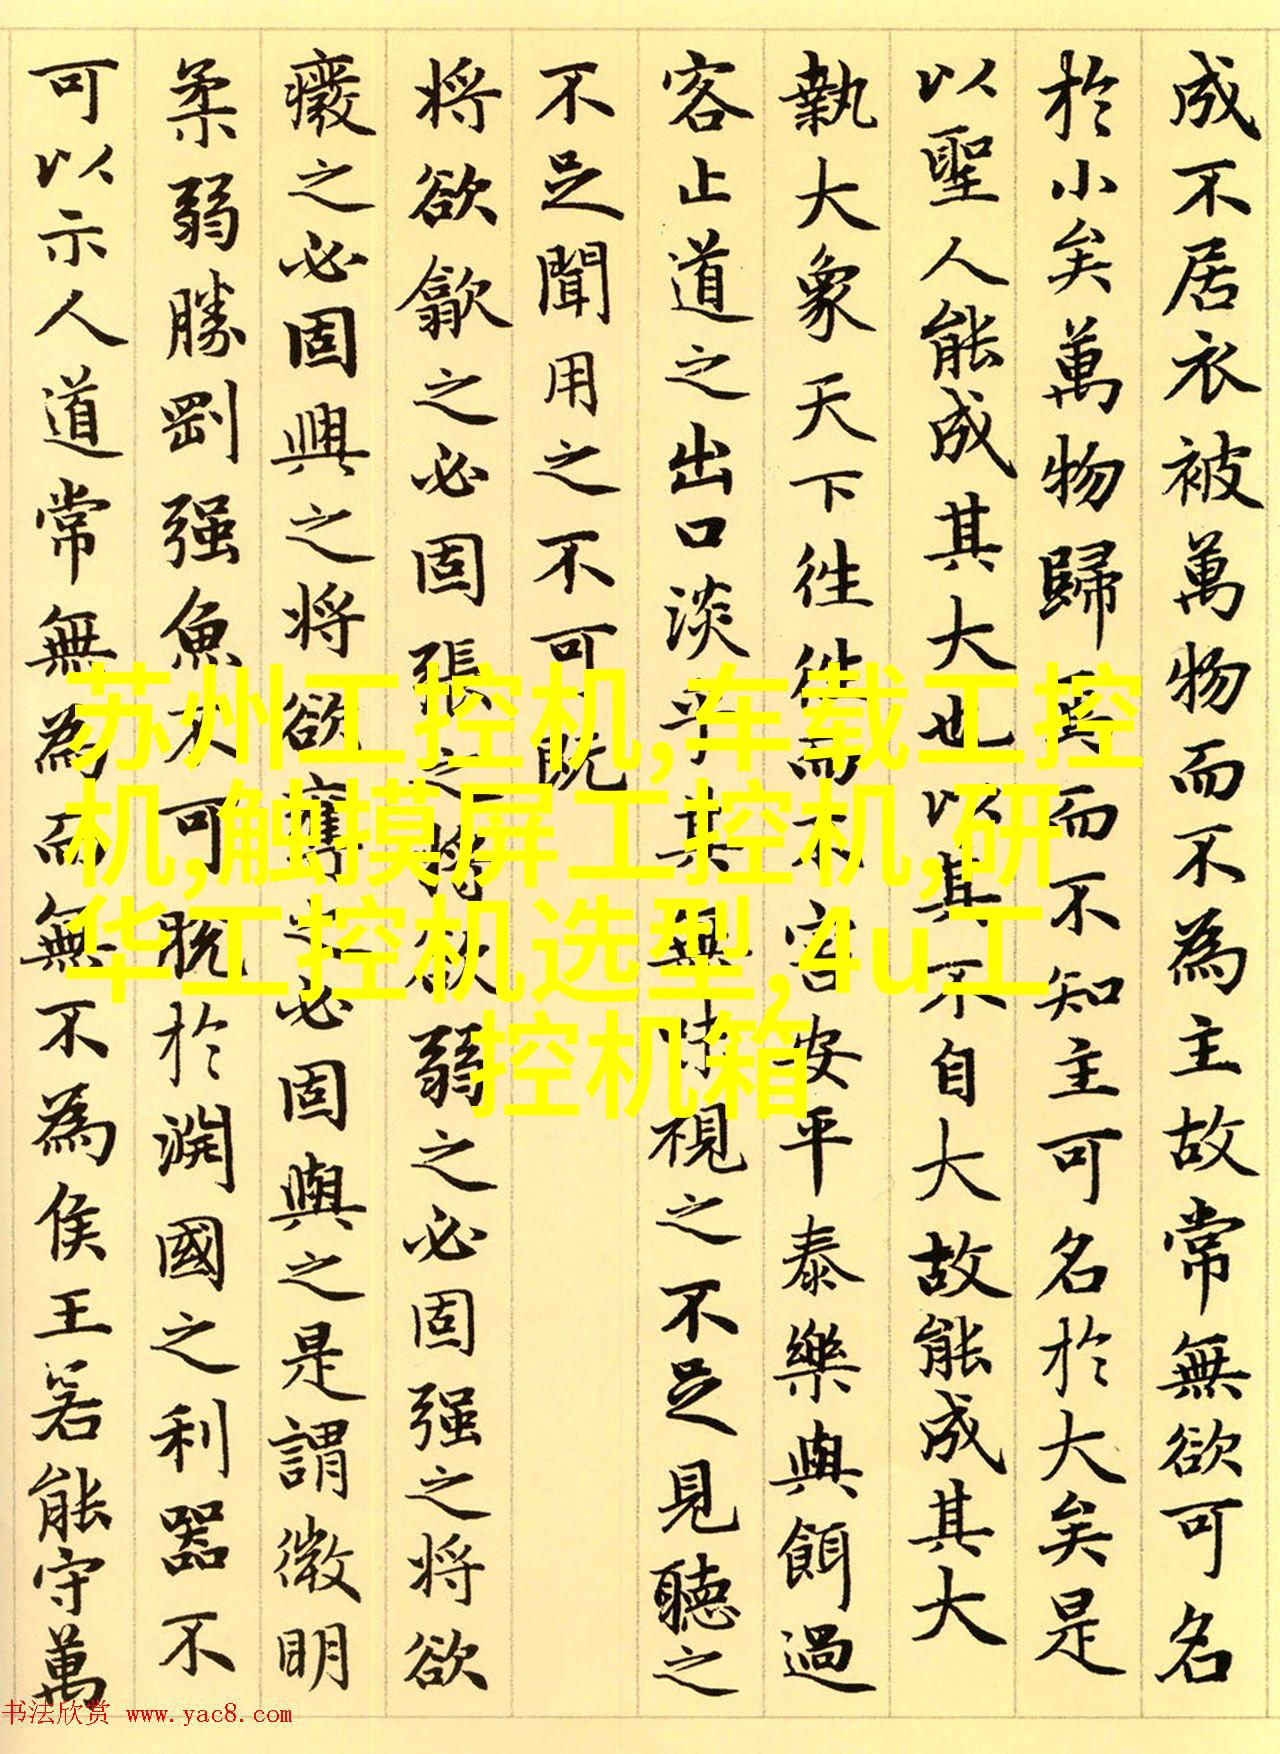 成不居衣被萬物而不為主故常無欲可名
於小矣萬物歸焉而不知主可名於大矣是
以聖人能成其大也以其不自大故能成其大
執大象天下往往而不害安平泰樂與餌過
客止道之出口淡乎其無味視之不足見聽之
不足聞用之不可既
将欲歙之必固張之将欲弱之必固强之将欲
癈之必固興之将欲奪之必固與之是謂微明
柔弱勝剛强魚不可脱於淵國之利器不
可以示人道常無為而無不為侯王若能守萬
苏州工控机,车载工控
机,触摸屏工控机,研
华工控机选型,4u工
控机箱
书法欣赏 www.yac8.com